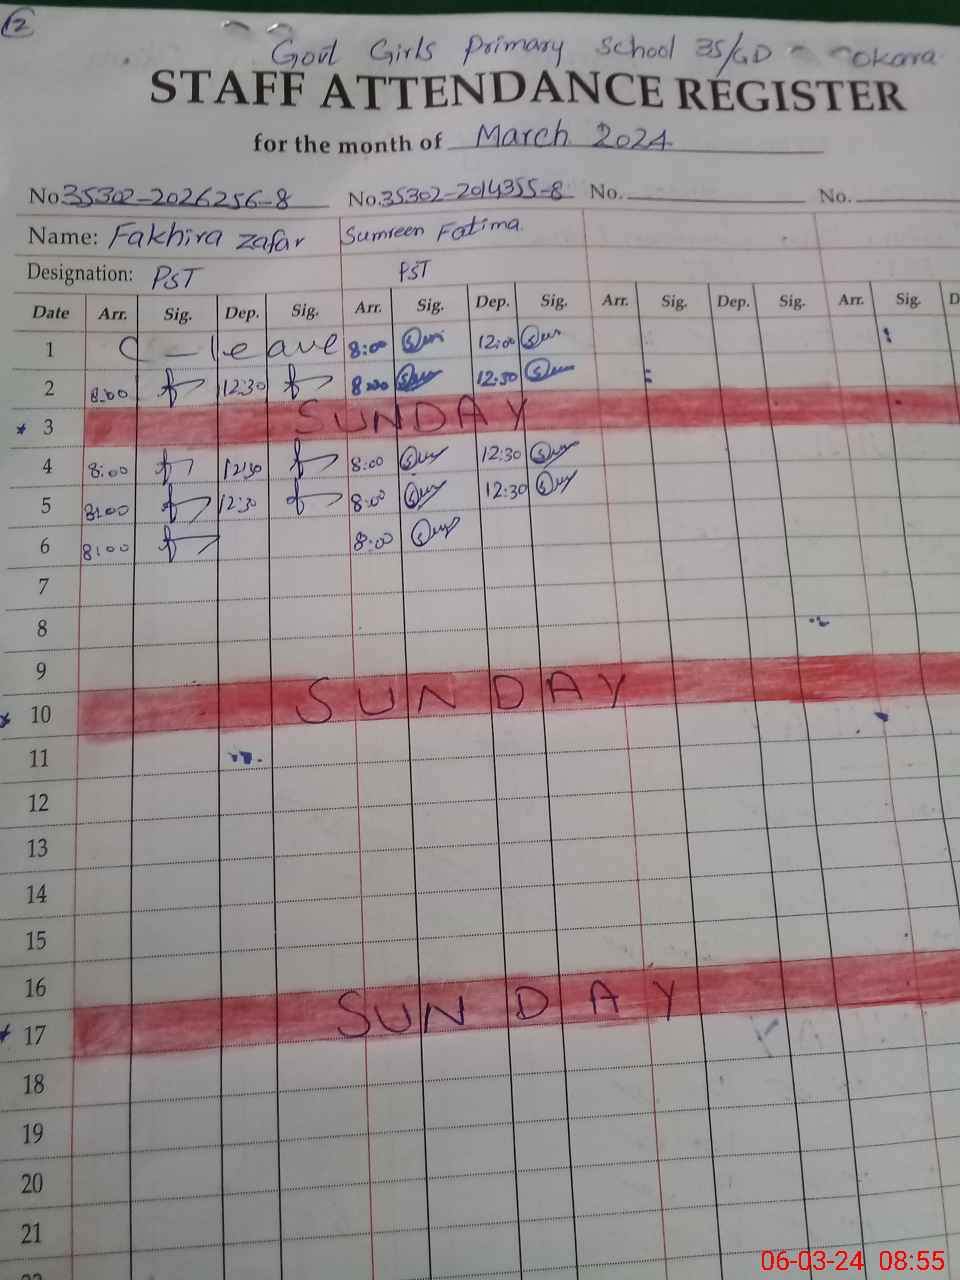 12
Govt Girls Primary School 35/GD Okara
STAFF ATTENDANCE REGISTER
for the month of March 2024
No. 35302-2026256-8 No. 35302-2014355-8 No. No.
Name: Fakhira Zafar Sumreen Fatima
Designation: PST PST
Date Arr. Sig. Dep. Sig. Arr. Sig. Dep. Sig. Arr. Sig. Dep. Sig. Arr. Sig. D
1 C-leave 8:00 12:00
2 8:00 12:30 8:00 12:30
* 3 SUNDAY
4 8:00 12:30 8:00 12:30
5 8:00 12:30 8:00 12:30
6 8:00 8:00
7
8
9
* 10 SUNDAY
11
12
13
14
15
16
* 17 SUNDAY
18
19
20
21
06-03-24 08:55